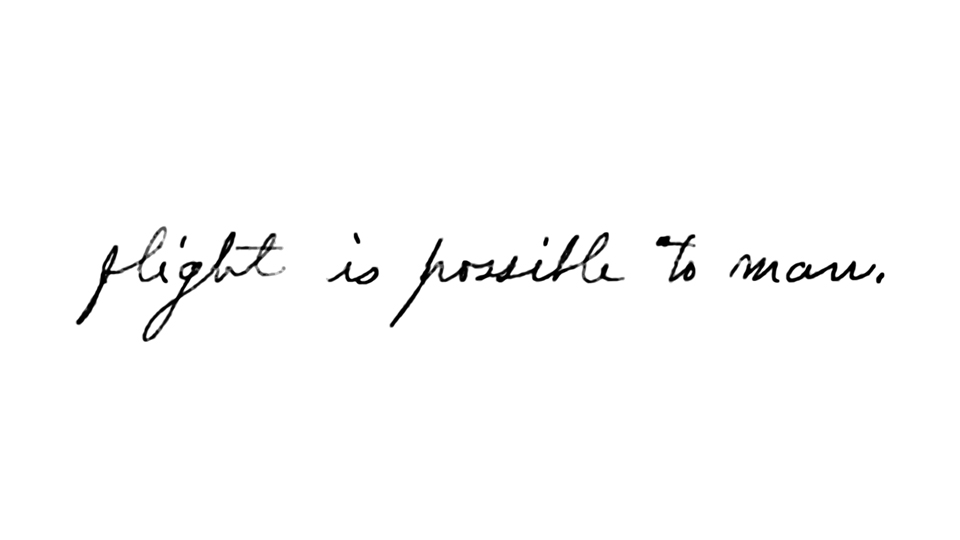 flight is possible to man.